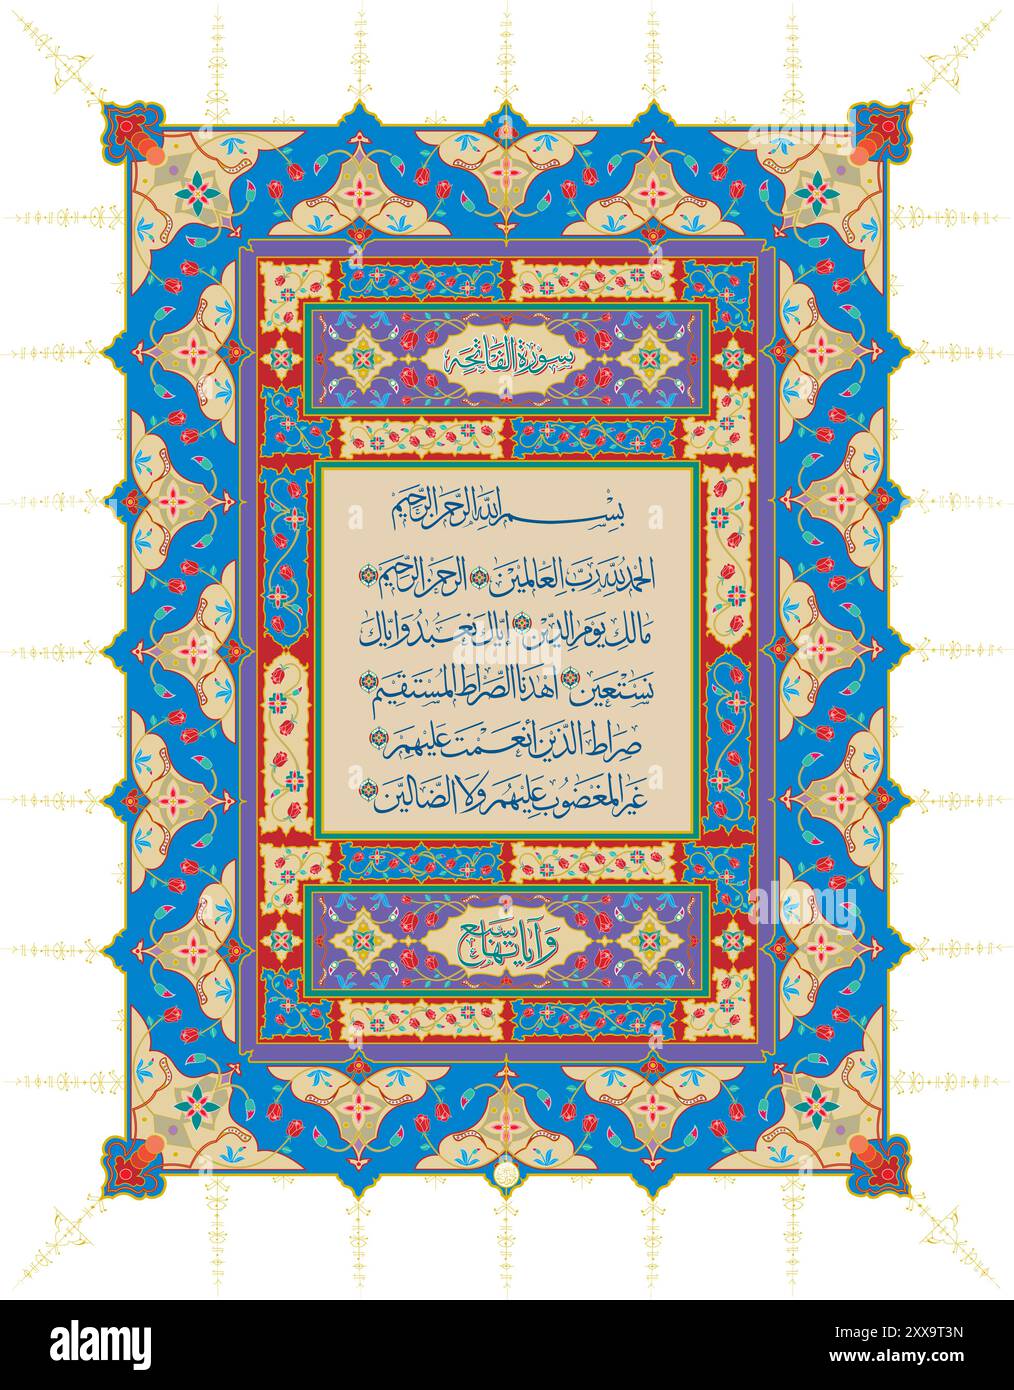 سورة الفاتحة
بسم الله الرحمن الرحيم
الحمد لله رب العالمين الرحمن الرحيم
مالك يوم الدين إياك نعبد وإياك
نستعين اهدنا الصراط المستقيم
صراط الذين أنعمت عليهم
غير المغضوب عليهم ولا الضالين
وآياتها سبع
alamy
Image ID: 2XX9T3N
www.alamy.com